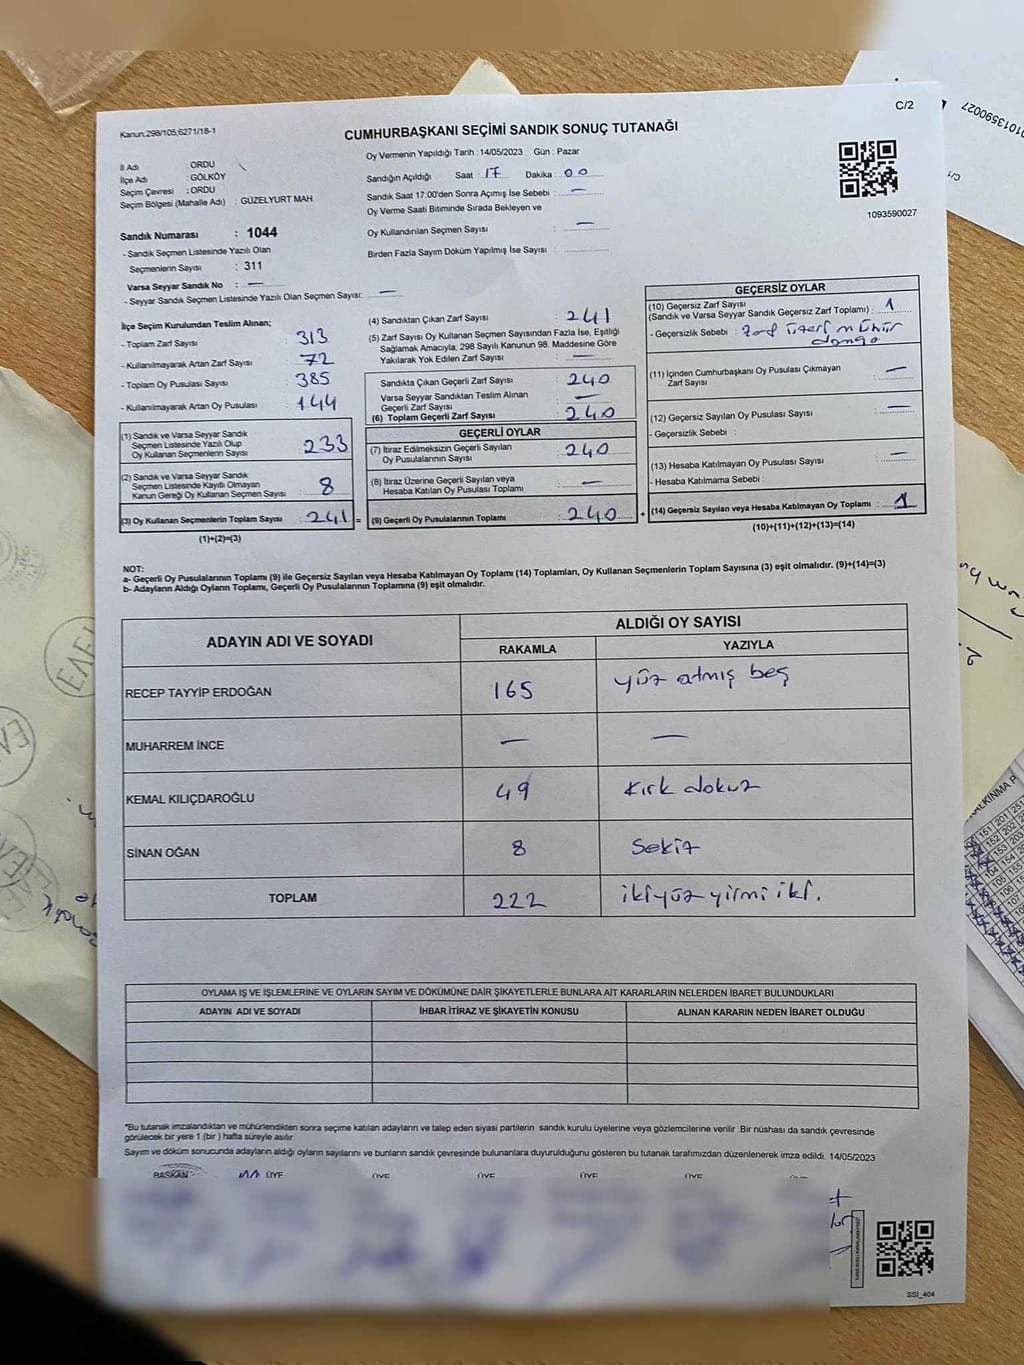 C/2
Kanun:298/105;6271/18-1
CUMHURBAŞKANI SEÇİMİ SANDIK SONUÇ TUTANAĞI
1093590027
İl Adı : ORDU
İlçe Adı : GÖLKÖY
Seçim Çevresi : ORDU
Seçim Bölgesi (Mahalle Adı) : GÜZELYURT MAH
Sandık Numarası : 1044
- Sandık Seçmen Listesinde Yazılı Olan
Seçmenlerin Sayısı : 311
Varsa Seyyar Sandık No : —
- Seyyar Sandık Seçmen Listesinde Yazılı Olan Seçmen Sayısı: —
Oy Vermenin Yapıldığı Tarih : 14/05/2023 Gün : Pazar
Sandığın Açıldığı Saat : 17 Dakika : 00
Sandık Saat 17.00'den Sonra Açımış İse Sebebi : —
Oy Verme Saati Bitiminde Sırada Bekleyen ve
Oy Kullandırılan Seçmen Sayısı : —
Birden Fazla Sayım Döküm Yapılmış İse Sayısı :
İlçe Seçim Kurulundan Teslim Alınan;
- Toplam Zarf Sayısı : 313
- Kullanılmayarak Artan Zarf Sayısı : 72
- Toplam Oy Pusulası Sayısı : 385
- Kullanılmayarak Artan Oy Pusulası : 144
(1) Sandık ve Varsa Seyyar Sandık
Seçmen Listesinde Yazılı Olup
Oy Kullanan Seçmenlerin Sayısı : 233
(2) Sandık ve Varsa Seyyar Sandık
Seçmen Listesinde Kayıtlı Olmayan
Kanun Gereği Oy Kullanan Seçmen Sayısı : 8
(3) Oy Kullanan Seçmenlerin Toplam Sayısı : 241 =
(1)+(2)=(3)
(4) Sandıktan Çıkan Zarf Sayısı : 241
(5) Zarf Sayısı Oy Kullanan Seçmen Sayısından Fazla İse, Eşitliği
Sağlamak Amacıyla, 298 Sayılı Kanunun 98. Maddesine Göre
Yakılarak Yok Edilen Zarf Sayısı : —
Sandıkta Çıkan Geçerli Zarf Sayısı : 240
Varsa Seyyar Sandıktan Teslim Alınan
Geçerli Zarf Sayısı : —
(6) Toplam Geçerli Zarf Sayısı : 240
GEÇERLİ OYLAR
(7) İtiraz Edilmeksizin Geçerli Sayılan
Oy Pusulalarının Sayısı : 240
(8) İtiraz Üzerine Geçerli Sayılan veya
Hesaba Katılan Oy Pusulası Toplamı : —
(9) Geçerli Oy Pusulalarının Toplamı : 240 +
GEÇERSİZ OYLAR
(10) Geçersiz Zarf Sayısı
(Sandık ve Varsa Seyyar Sandık Geçersiz Zarf Toplamı) : 1
- Geçersizlik Sebebi : Zarf üzeri mühür
damga
(11) İçinden Cumhurbaşkanı Oy Pusulası Çıkmayan
Zarf Sayısı : —
(12) Geçersiz Sayılan Oy Pusulası Sayısı : —
- Geçersizlik Sebebi :
(13) Hesaba Katılmayan Oy Pusulası Sayısı : —
- Hesaba Katılmama Sebebi :
(14) Geçersiz Sayılan veya Hesaba Katılmayan Oy Toplamı : 1
(10)+(11)+(12)+(13)=(14)
NOT:
a- Geçerli Oy Pusulalarının Toplamı (9) ile Geçersiz Sayılan veya Hesaba Katılmayan Oy Toplamı (14) Toplamları, Oy Kullanan Seçmenlerin Toplam Sayısına (3) eşit olmalıdır. (9)+(14)=(3)
b- Adayların Aldığı Oyların Toplamı, Geçerli Oy Pusulalarının Toplamına (9) eşit olmalıdır.
ADAYIN ADI VE SOYADI
ALDIĞI OY SAYISI
RAKAMLA YAZIYLA
RECEP TAYYİP ERDOĞAN 165 yüz atmış beş
MUHARREM İNCE — —
KEMAL KILIÇDAROĞLU 49 Kırk dokuz
SİNAN OĞAN 8 Sekiz
TOPLAM 222 ikiyüz yirmi iki.
OYLAMA İŞ VE İŞLEMLERİNE VE OYLARIN SAYIM VE DÖKÜMÜNE DAİR ŞİKAYETLERLE BUNLARA AİT KARARLARIN NELERDEN İBARET BULUNDUKLARI
ADAYIN ADI VE SOYADI İHBAR İTİRAZ VE ŞİKAYETİN KONUSU ALINAN KARARIN NEDEN İBARET OLDUĞU
"Bu tutanak imzalandıktan ve mühürlendikten sonra seçime katılan adayların ve talep eden siyasi partilerin sandık kurulu üyelerine veya gözlemcilerine verilir. Bir nüshası da sandık çevresinde
görülecek bir yere 1 (bir ) hafta süreyle asılır.
Sayım ve döküm sonucunda adayların aldığı oyların sayılarını ve bunların sandık çevresinde bulunanlara duyurulduğunu gösteren bu tutanak tarafımızdan düzenlenerek imza edildi. 14/05/2023
BAŞKAN ÜYE ÜYE ÜYE ÜYE ÜYE
SSI_404